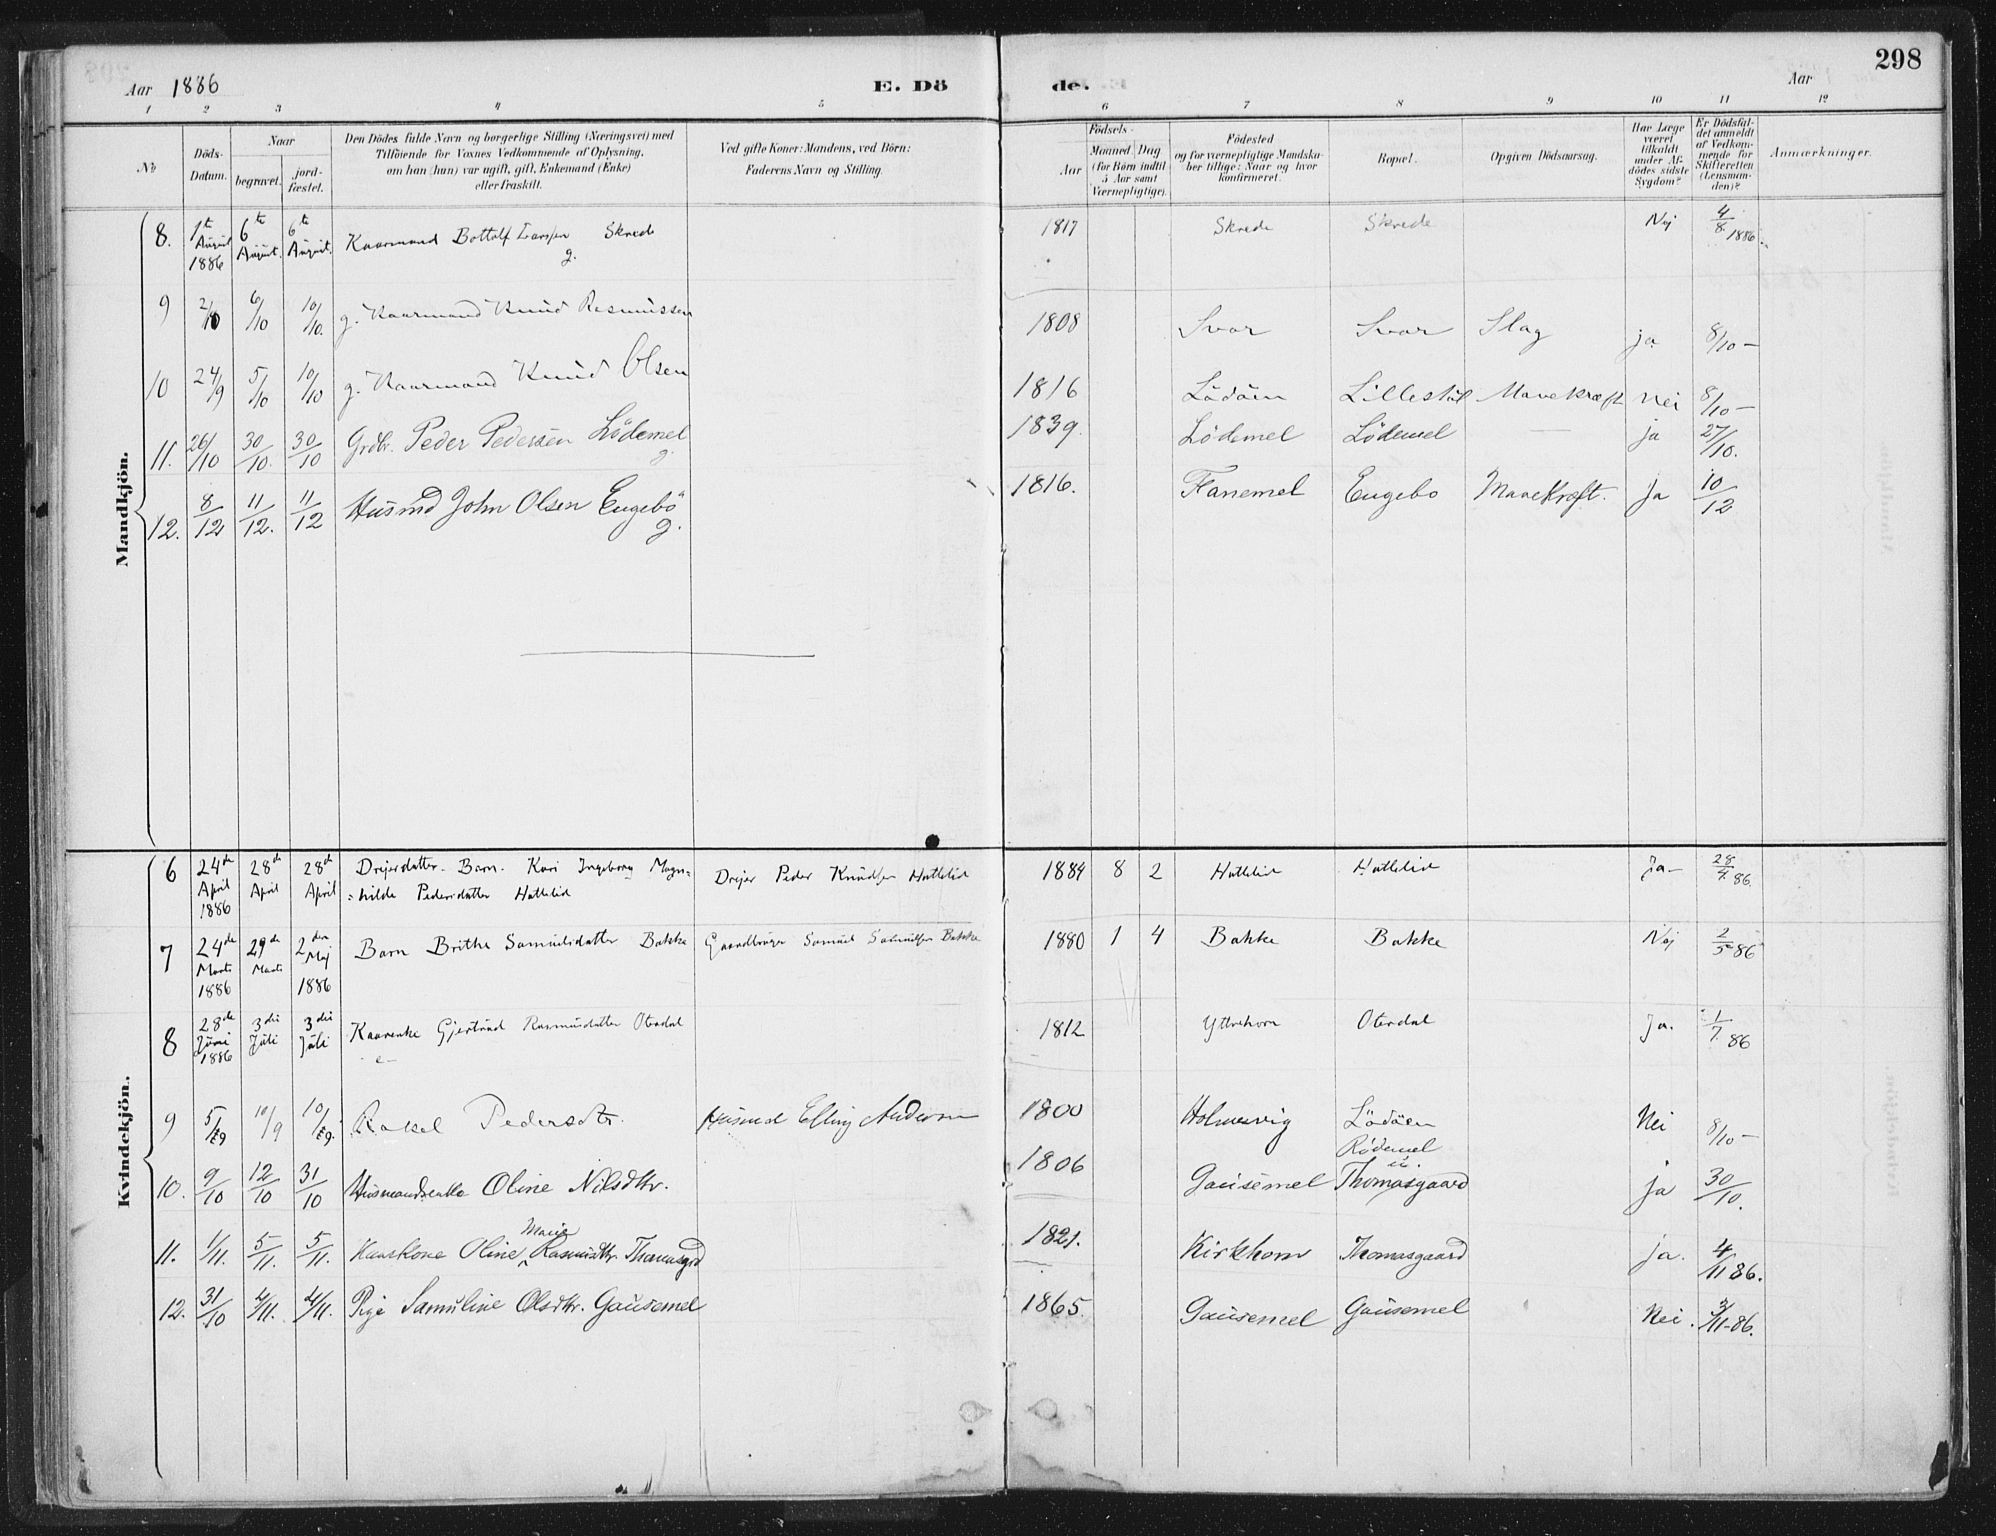 298
Aar 1886 E. Dö de. Aar
1 2 3 4 5 6 7 8 9 10 11 12
No
Döds-
Datum.
Naar
begravet.
jord-
fæstet.
Den Dödes fulde Navn og borgerlige Stilling (Næringsvei) med
Tilföiende for Voxnes Vedkommende af Oplysning,
om han (hun) var ugift, gift, Enkemand (Enke)
eller fraskilt.
Ved gifte Koner: Mandens, ved Börn:
Faderens Navn og Stilling.
Födsels-
Aar
Maaned Dag
(for Börn indtil
5 Aar samt
Værnepligtige).
Födested
og for værnepligtige Mandska-
ber tillige: Naar og hvor
konfirmeret.
Bopæl.
Opgiven Dödsaarsag.
Har Læge
været
tilkaldt
under Af-
dödes sidste
Sygdom?
Er Dödsfal-
det anmeldt
af Vedkom-
mende for
Skifteretten
(Lensman-
den)?
Anmærkninger.
Mandkjön.
8. 1te August 1886 6te August. 6te August. Kaarmand Bottolf Larssen Skrede g. 1817 Skrede Skrede Nej 4/8 1886.
9 2/10 6/10 10/10. g. Kaarmand Knud Rasmussen 1808 Svor Svor Slag ja 8/10 –
10 24/9 5/10 10/10 g. Kaarmand Knud Olsen 1816 Lödöen Lillestöl Mavekræft Nei 8/10 –
11. 26/10 30/10. 30/10 Grdbr. Peder Pedersen Lödemel g. 1839. Lödemel Lödemel — ja 27/10.
12. 8/12 11/12. 11/12 Husmd John Olsen Engebö g. 1816. Flanemel Engebo Mavekræft. ja 10/12
Kvindekjön.
6 24de April 1886 28de April 28de April Drejerdatter. Barn. Kari Ingeborg Magn=
=hilde Pedersdatter Hattelid Drejer Peder Knudsen Hattelid 1884 8 2 Hattelid Hattelid Ja – 28/4. 86.
7 24de Marts 1886 29de Marts 2den Maj 1886 Barn Brithe Samuelsdatter Bakke Gaardbruger Samuel Salmuelsen Bakke 1880 1 4 Bakke Bakke Nej 2/5 86
8 28de Juni 1886 3die Juli 3die Juli Kaarenke Gjertrud Rasmusdatter Oterdal
e– 1812 Yttrehorn Oterdal Ja. 1/7. 86
9 5/9 10/9 10/9. Rakel Pedersdtr. Husmd Elling Andersen 1800 Holmesvig Lödöen Nei 8/10 –
10. 9/10 12/10 31/10 Husmandsenke Oline Nilsdtr. 1806 Gausemel Rödemel
u. Thomasgaard ja 30/10.
11. 1/11. 5/11. 5/11. Kaarkone Oline Marie Rasmusdtr. Thomasgrd 1821. Kirkhorn Thomasgaard ja. 4/11 86.
12. 31/10 4/11. 4/11. Pige Samuline Olsdtr. Gausemel 1865. Gausemel Gausemel Nei. 3/11-86.